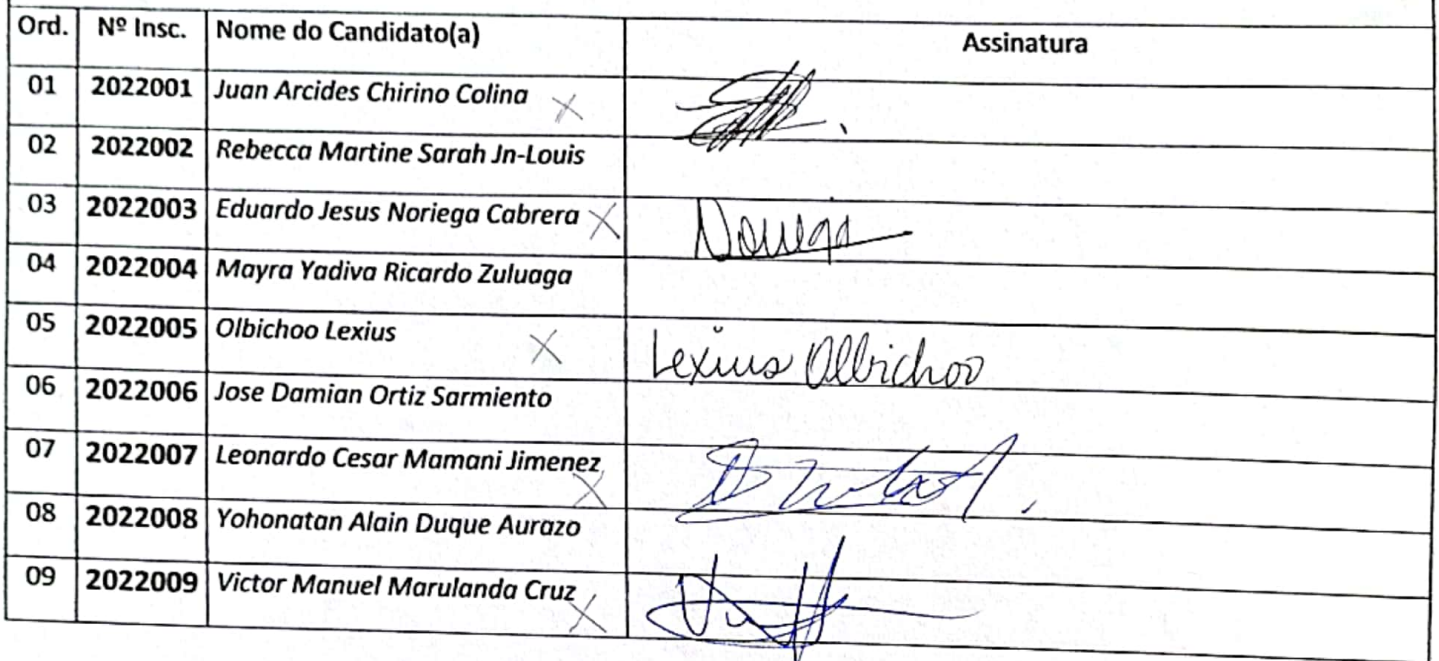 Ord. Nº Insc. Nome do Candidato(a) Assinatura
01 2022001 Juan Arcides Chirino Colina X
02 2022002 Rebecca Martine Sarah Jn-Louis
03 2022003 Eduardo Jesus Noriega Cabrera X Noriega
04 2022004 Mayra Yadiva Ricardo Zuluaga
05 2022005 Olbichoo Lexius X Lexius Olbichoo
06 2022006 Jose Damian Ortiz Sarmiento
07 2022007 Leonardo Cesar Mamani Jimenez X
08 2022008 Yohonatan Alain Duque Aurazo
09 2022009 Victor Manuel Marulanda Cruz X